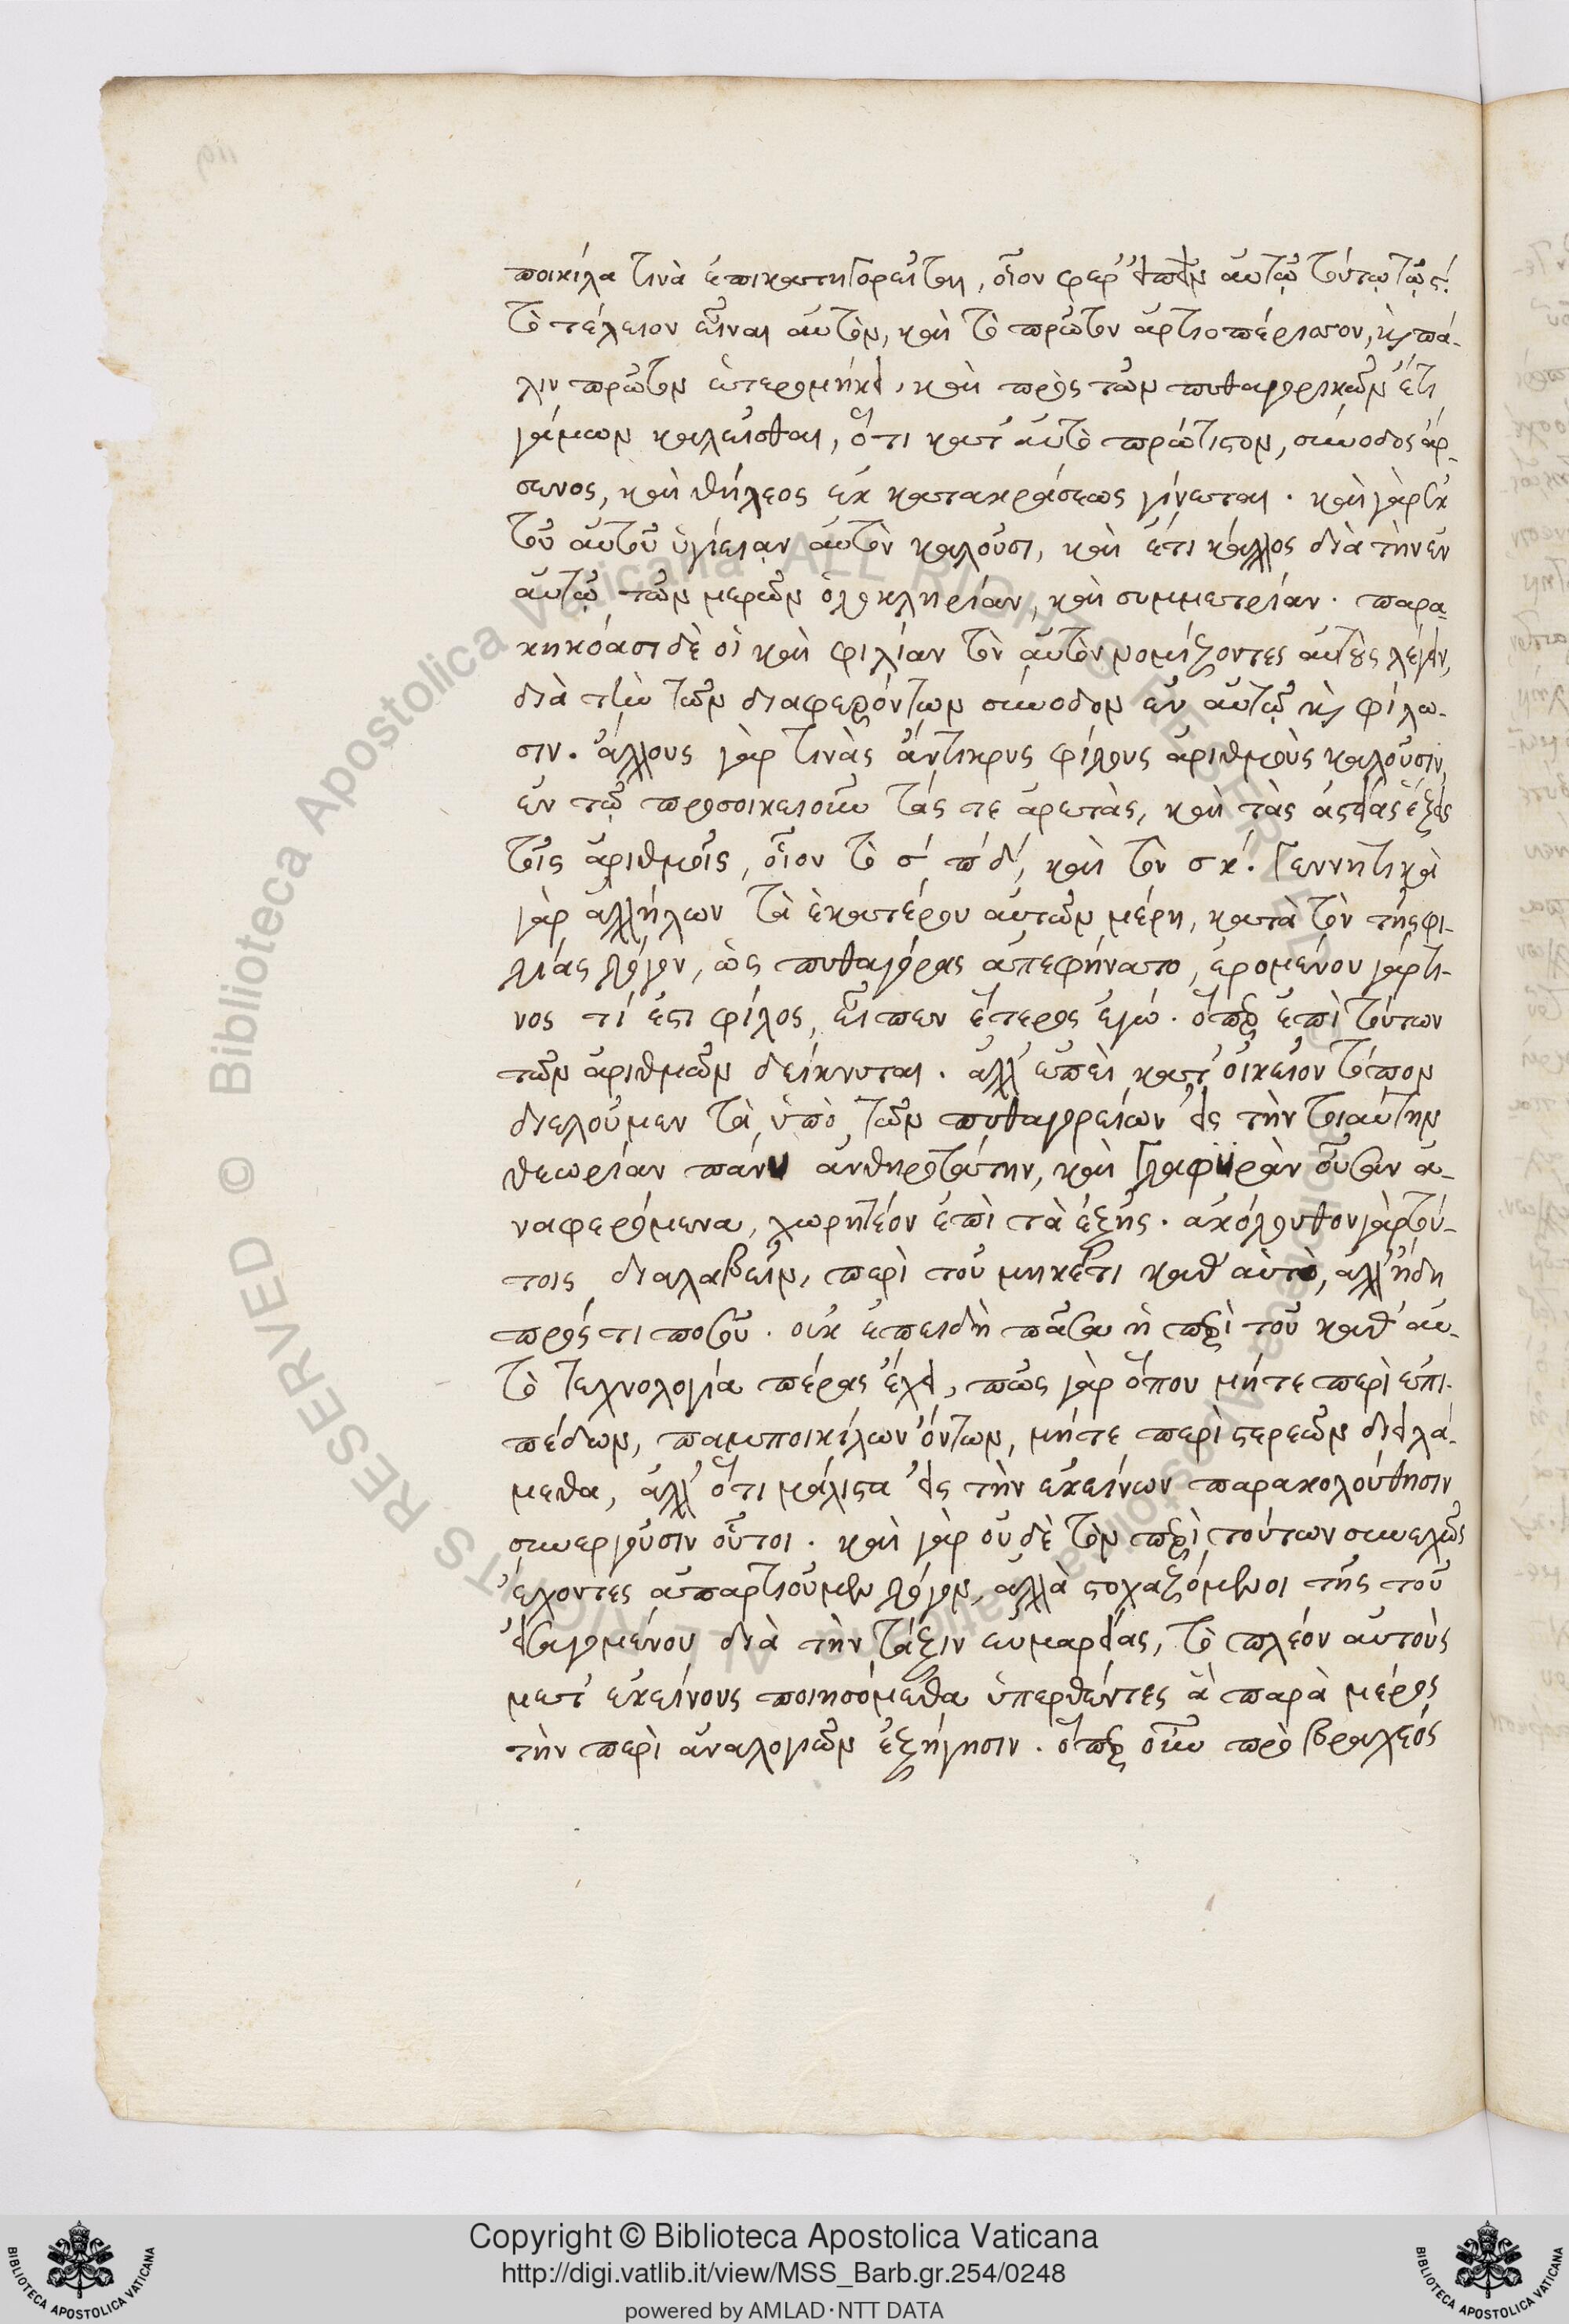 ποικίλα τινὰ ἐπικατηγορεῖται, οἷον φέρ' εἰπεῖν αὐτῷ τούτῳ τῷ ς΄.
τὸ τέλειον εἶναι αὐτὸν, καὶ τὸ πρῶτον ἀρτιοπέρισσον, καὶ πά-
λιν πρῶτον ἑτερομήκει, καὶ πρὸς τῶν πυθαγορικῶν ἔτι
γάμων καλεῖσθαι, ὅτι κατ' αὐτὸ πρώτιστον, σύνοδος ἄρ-
σενος, καὶ θήλεος ἐκ κατακράσεως γίνεται. καὶ γὰρ ἐκ
τοῦ αὐτοῦ ὑγίειαν αὐτὸν καλοῦσι, καὶ ἔτι κάλλος διὰ τὴν ἐν
αὐτῷ τῶν μερῶν ὁλοκληρίαν, καὶ συμμετρίαν. παρα-
κηκόασι δὲ οἱ καὶ φιλίαν τὸν αὐτὸν νομίζοντες αὐτοὺς λέγειν,
διὰ τὴν τῶν διαφερόντων σύνοδον ἐν αὐτῷ καὶ φίλω-
σιν. ἄλλους γὰρ τινὰς ἄντικρυς φίλους ἀριθμοὺς καλοῦσιν,
ἐν τῷ προσοικειοῦν τάς τε ἀρετὰς, καὶ τὰς ἀστείας ἕξεις
τοῖς ἀριθμοῖς, οἷον τὸ σ΄ π΄ δ΄, καὶ τὸν σκ΄. Γεννητικὰ
γὰρ ἀλλήλων τὰ ἑκατέρου αὐτῶν μέρη, κατὰ τὸν τῆς φι-
λίας λόγον, ὡς πυθαγόρας ἀπεφήνατο, ἐρομένου γάρ τι-
νος τί ἐστι φίλος, εἶπεν ἕτερος ἐγώ. ὅπερ ἐπὶ τούτων
τῶν ἀριθμῶν δείκνυται. ἀλλ' ἐπεὶ κατ' οἰκεῖον τόπον
διελοῦμεν τὰ ὑπὸ τῶν πυθαγορείων εἰς τὴν τοιαύτην
θεωρίαν πάνυ ἀνθηροτάτην, καὶ Γλαφυρὰν οὖσαν ἀ-
ναφερόμενα, χωρητέον ἐπὶ τὰ ἑξῆς. ἀκόλουθον γὰρ τού-
τοις διαλαβεῖν, περὶ τοῦ μηκέτι καθ' αὑτὸ, ἀλλ' ἤδη
πρός τι ποσοῦ. οὐκ ἐπειδὴ πᾶσα ἡ περὶ τοῦ καθ' αὑ-
τὸ τεχνολογία πέρας ἔχει, πῶς γὰρ ὅπου μήτε περὶ ἐπι-
πέδων, παμποικίλων ὄντων, μήτε περὶ στερεῶν διειλά-
μεθα, ἀλλ' ὅτι μάλιστα εἰς τὴν ἐκείνων παρακολούθησιν
συνεργοῦσιν οὗτοι. καὶ γὰρ οὐδὲ τὸν περὶ τούτων συνεχῶς
ἔχοντες ἀπαρτιοῦμεν λόγον, ἀλλὰ στοχαζόμενοι τῆς τοῦ
εἰσαγομένου διὰ τὴν τάξιν εὐμαρείας, τὸ πλέον αὐτοὺς
μετ' ἐκείνους ποιησόμεθα ὑπερθέντες ἃ παρὰ μέρος
τὴν περὶ ἀναλογιῶν ἐξήγησιν. ὅπερ οὖν πρὸ βραχέος
Copyright © Biblioteca Apostolica Vaticana
http://digi.vatlib.it/view/MSS_Barb.gr.254/0248
powered by AMLAD·NTT DATA